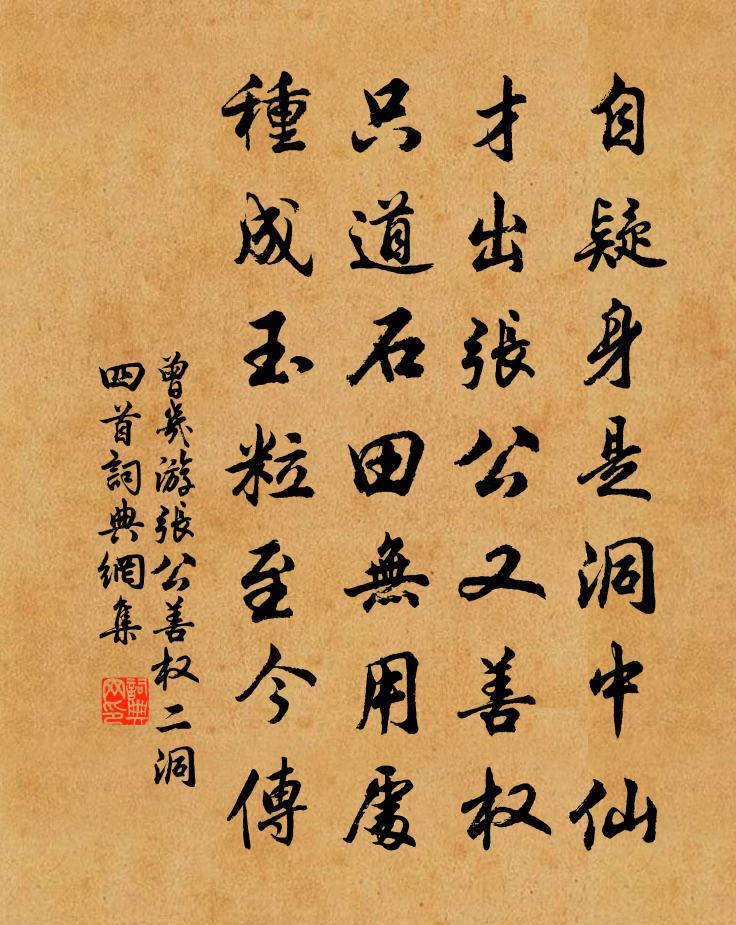 自疑身是洞中仙
才出張公又善权
只道石田無用處
種成玉粒至今傳
曾幾游張公善权二洞
四首詞典網集
詞典網印